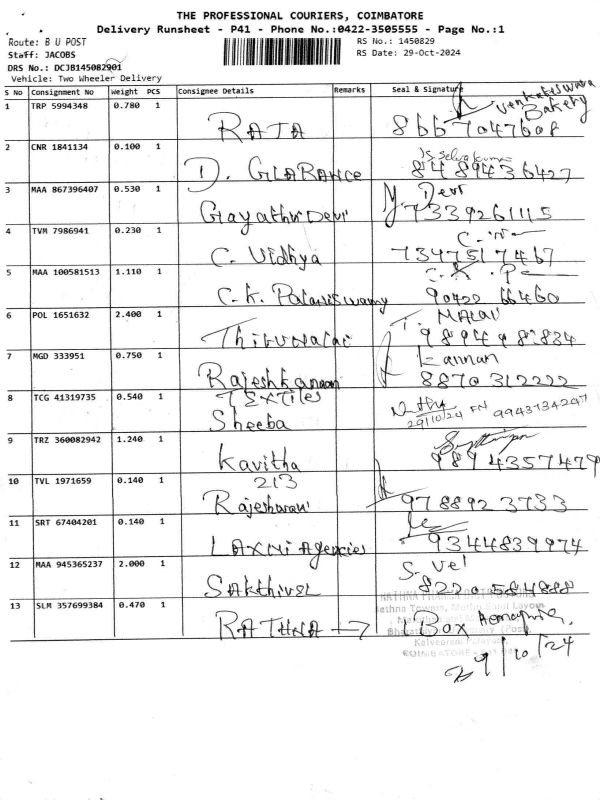 THE PROFESSIONAL COURIERS, COIMBATORE
Delivery Runsheet - P41 - Phone No.:0422-3505555 - Page No.:1
Route: B U POST
RS No.: 1450829
Staff: JACOBS
RS Date: 29-Oct-2024
DRS No.: DCJB145082901
Vehicle: Two Wheeler Delivery
S No Consignment No Weight PCS Consignee Details Remarks Seal & Signature
Venkateswara
Bakery
1 TRP 5994348 0.780 1
RAJA 8667047608
2 CNR 1841134 0.100 1
D. GLARANCE 8489436427
3 MAA 867396407 0.530 1 Y. Devi
Gayathri Devi 7339261115
4 TVM 7986941 0.230 1
C. Vidhya 7347517467
5 MAA 100581513 1.110 1 C. K. P
C.K. Palaniswamy 90422 66460
6 POL 1651632 2.400 1 T. MALAI
Thirumalai 9894982834
7 MGD 333951 0.750 1 Kannan
Rajeshkannan 8870312222
8 TCG 41319735 0.540 1 TEXTILES
29/10/24 FN 9943734297
Sheeba
9 TRZ 360082942 1.240 1
Kavitha 9894357479
10 TVL 1971659 0.140 1 213
Rajeshwari 9788923733
11 SRT 67404201 0.140 1
LAXMI Agencies 9344839974
12 MAA 945365237 2.000 1 S. Vel
SAKTHIVEL 8220584888
13 SLM 357699384 0.470 1
RATHNA → Box
29/10/24